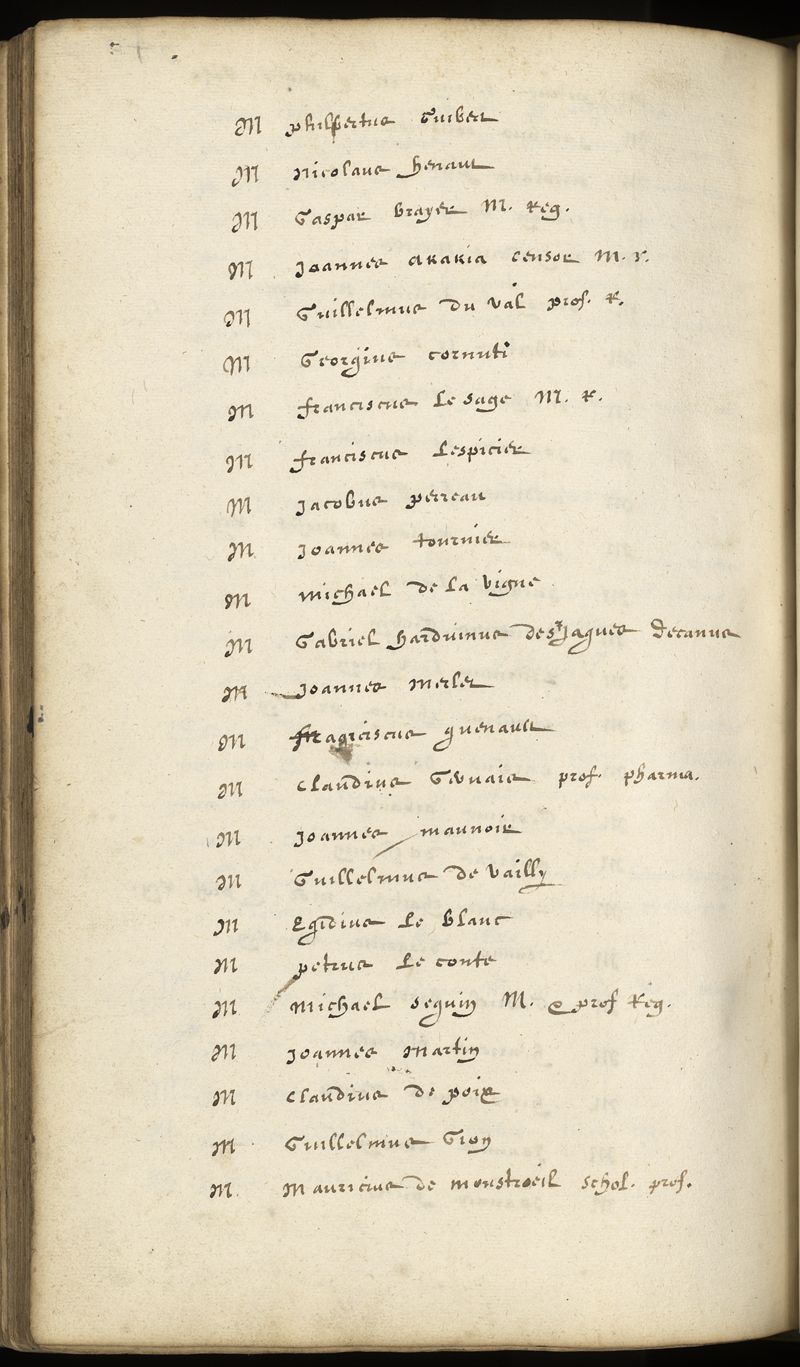 M philpertus Guibert
M Nicolaus Henaut
M Gaspar Brayer M. Reg.
M Joannes Akakia Censor M. r.
M Guillelmus du Val prof. R.
M Georgius Cornuti
M franciscus Le Sage M. R.
M franciscus Lespicier
M Jacobus perreau
M Joannes tournier
M Michael de La Vigne
M Gabriel Harduinus Decanus
M Joannes Merlet
M franciscus guenault
M Claudius prof. pharma.
M Joannes maunoir
M Guillelmus de Vailly
M Egidius Le Blanc
M petrus Le Conte
M Michael Seguin M. & prof Reg.
M Joannes Martin
M Claudius de poix
M Guillelmus
M Mauricius de monstroeil Schol. prof.